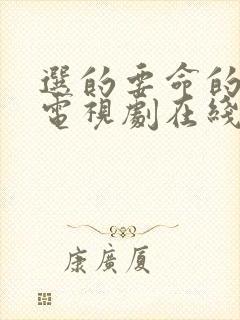 選的要命的
電視劇在綫
康廣厦